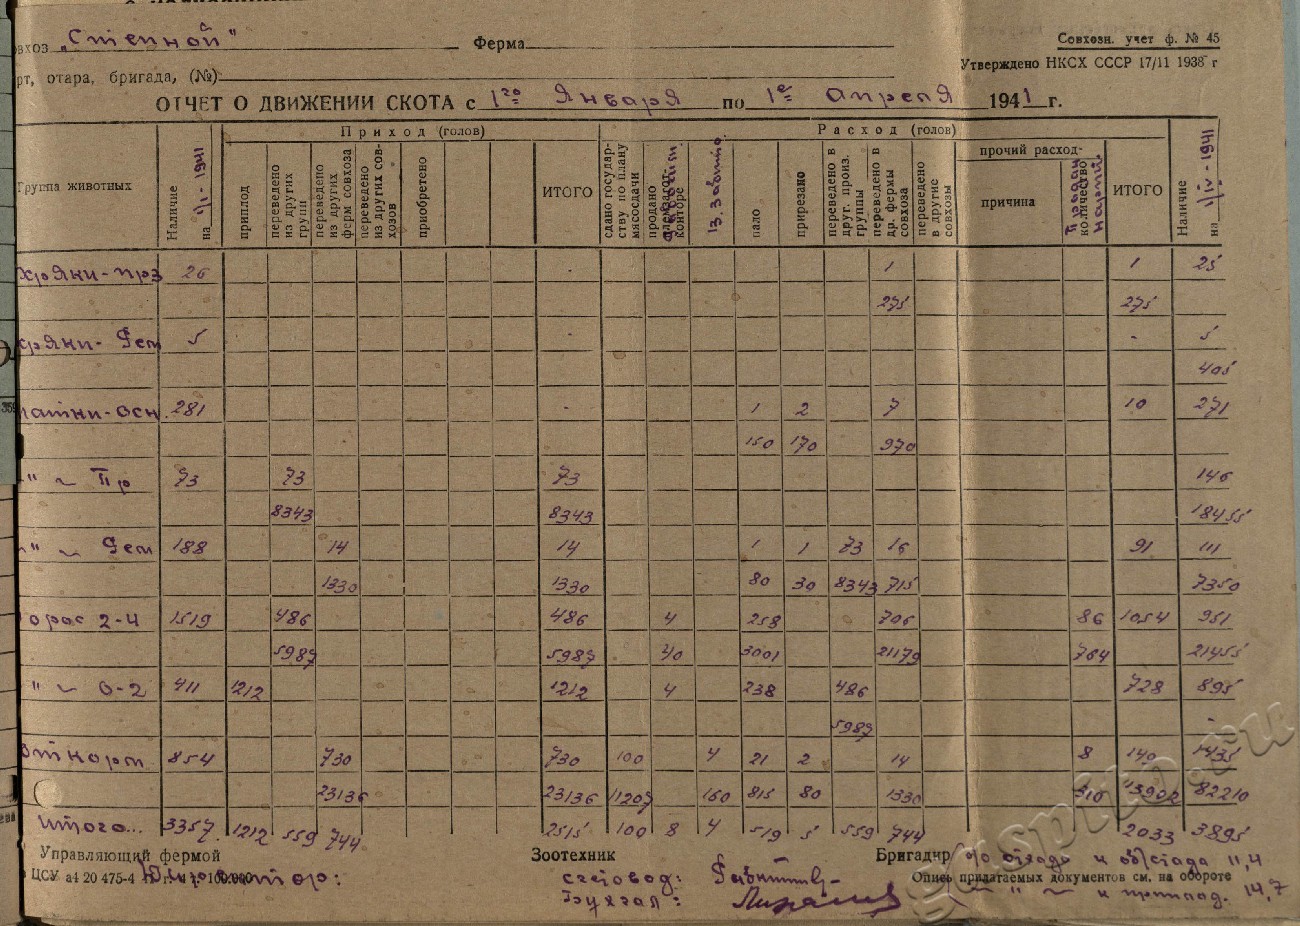 совхоз „Степной"
Ферма
Совхозн. учет ф. № 45
Утверждено НКСХ СССР 17/11 1938 г
рт, отара, бригада, (№)
ОТЧЕТ О ДВИЖЕНИИ СКОТА с 1го Января по 1е апреля 1941 г.
Группа животных
Наличие на 1/I-1941
Приход (голов)
приплод
переведено из других групп
переведено из других ферм совхоза
переведено из других совхозов
приобретено
ИТОГО
Расход (голов)
сдано государству по плану мясосдачи
продано конторе
пало
прирезано
переведено в друг. произ. группы
переведено в др. фермы совхоза
переведено в другие совхозы
прочий расход
причина
количество
Продан
ИТОГО
Наличие на 1/IV-1941
хряки-прз 26 - 1 1 25
275 275
хряки-Рем 5 - 5
405
матки-осн. 281 - 1 2 7 10 271
150 170 970
" Пр 73 73 73 146
8343 8343 18455
" Рем 188 14 14 1 1 73 16 91 111
1330 1330 80 30 8343 715 7350
порос 2-4 1519 486 486 4 258 706 86 1054 951
5987 5987 40 3001 21179 764 21455
" 0-2 411 1212 1212 4 238 486 728 895
5987 -
откорм 854 730 730 100 4 21 2 14 8 149 1435
23136 23136 11207 160 815 80 1330 310 13902 82210
Итого... 3357 1212 559 744 2515 100 8 4 519 5 559 744 2033 3895
Управляющий фермой
Зоотехник
Бригадир
% отхода к об/стада 11,4
ЦСУ а4 20 475-4
100.000
Директор:
Счетовод:
Опись прилагаемых документов см. на обороте
Бухгал:
" к приплод. 14,7
gaspito.ru